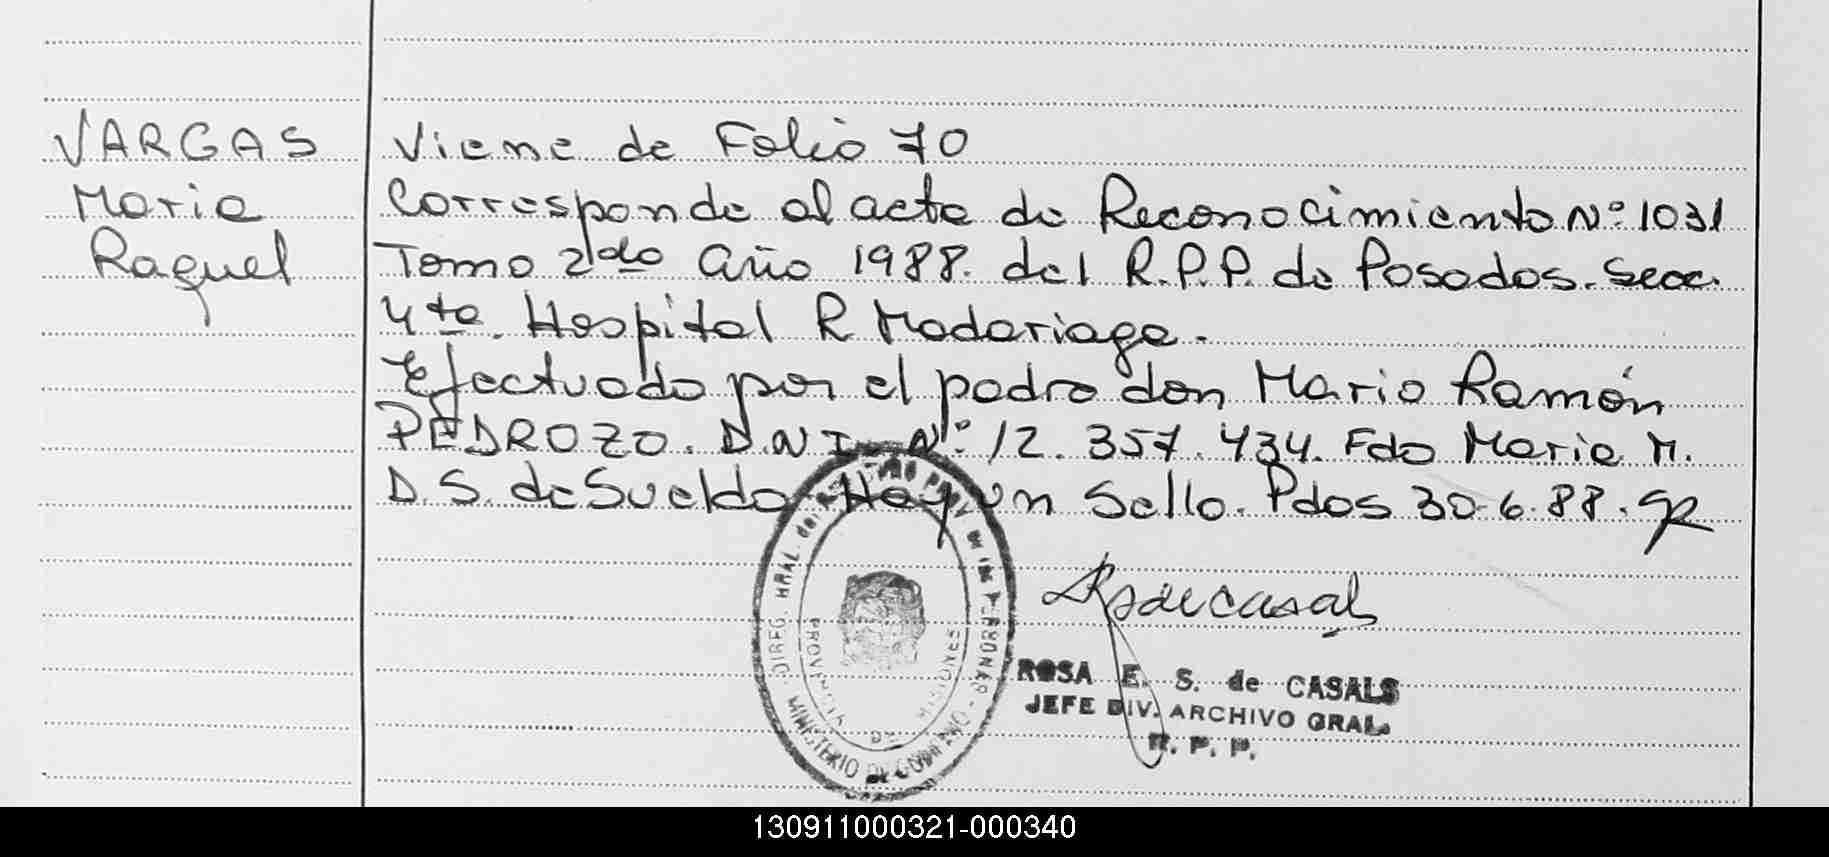 VARGAS
Maria
Raquel
Viene de Folio 70
Corresponde al acta de Reconocimiento Nº 1031
Tomo 2do año 1988. del R.P.P. de Posadas. Secc.
4ta. Hospital R Madariaga.
Efectuado por el padre don Mario Ramón
PEDROZO. D.N.I. Nº: 12.357.434. Fdo Maria M.
D.S. de Sueldo Hay un Sello. Pdas 30-6-88.
DIREG. GRAL. del REGISTRO PROV. DE LAS PERSONAS
PROVINCIA DE MISIONES
MINISTERIO DE GOBIERNO
ROSA E. S. de CASALS
JEFE DIV. ARCHIVO GRAL.
R. P. P.
130911000321-000340